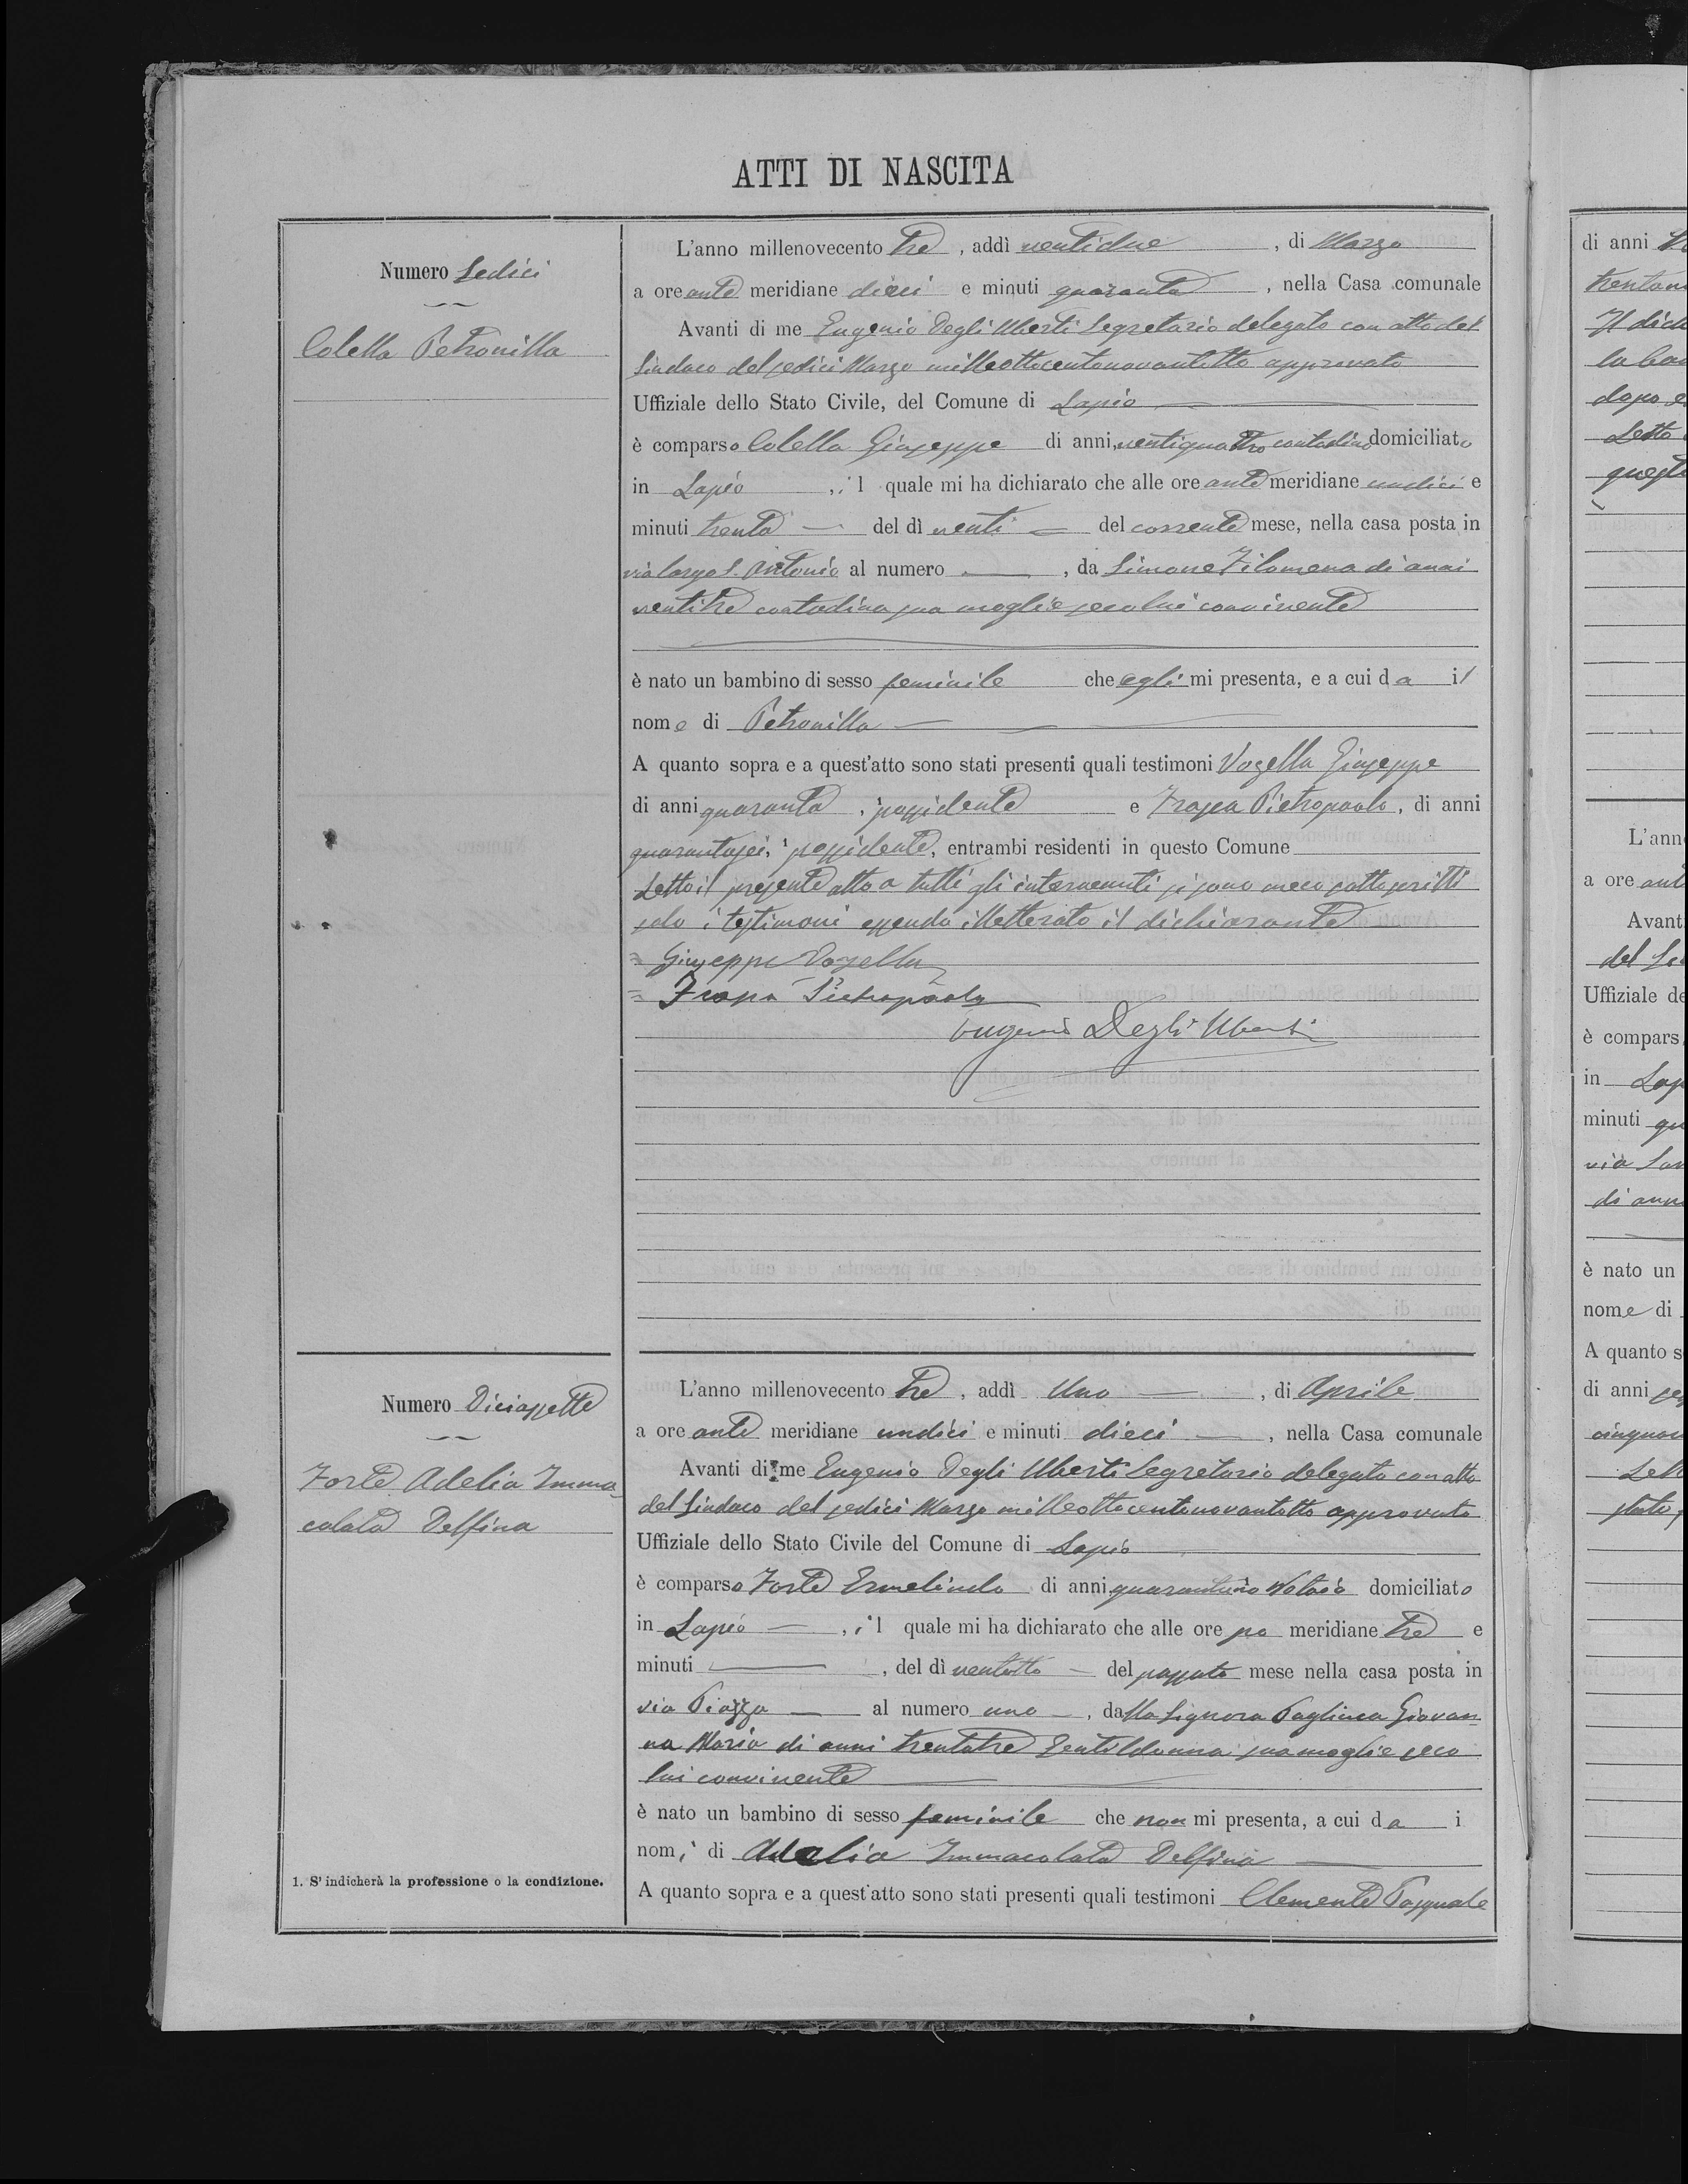 ATTI DI NASCITA
Numero Sedici
Colella Petronilla
L'anno millenovecento tre, addì ventidue, di Marzo
a ore ante meridiane dieci e minuti quaranta, nella Casa comunale
Avanti di me Eugenio Degli Uberti Segretario delegato con atto del
Sindaco del sedici Marzo milleottocentonovantotto approvato
Uffiziale dello Stato Civile, del Comune di Lapio
è comparso Colella Giuseppe di anni ventiquattro contadino domiciliato
in Lapio, il quale mi ha dichiarato che alle ore ante meridiane undici e
minuti trenta del dì venti del corrente mese, nella casa posta in
via largo S. Antonio al numero, da Simone Filomena di anni
ventitre contadina sua moglie seco lui convivente
è nato un bambino di sesso feminile che egli mi presenta, e a cui da il
nome di Petronilla
A quanto sopra e a quest'atto sono stati presenti quali testimoni Vozella Giuseppe
di anni quaranta, possidente e Trapa Pietropaolo, di anni
quarantasei, possidente, entrambi residenti in questo Comune
Letto il presente atto a tutti gli intervenuti si sono meco sottoscritti
solo i testimoni essendo illetterato il dichiarante
= Giuseppe Vozella
= Pietropaolo
Eugenio Degli Uberti
Numero Diciassette
Forte Adelia Imma-
colata Delfina
L'anno millenovecento tre, addì Uno, di Aprile
a ore ante meridiane undici e minuti dieci, nella Casa comunale
Avanti di me Eugenio Degli Uberti Segretario delegato con atto
del Sindaco del sedici Marzo milleottocentonovantotto approvato
Uffiziale dello Stato Civile del Comune di Lapio
è comparso Forte Ermelindo di anni quarantuno Notaio domiciliato
in Lapio, il quale mi ha dichiarato che alle ore po meridiane tre e
minuti, del dì ventotto del passato mese nella casa posta in
via Piazza al numero uno, dalla Signora Pagliuca Giovan-
na Maria di anni trentatre Gentildonna sua moglie seco
lui convivente
è nato un bambino di sesso feminile che non mi presenta, a cui da i
nomi di Adelia Immacolata Delfina
A quanto sopra e a quest'atto sono stati presenti quali testimoni Clemente Pasquale
1. S'indicherà la professione o la condizione.
di anni
dopo
Letto
L'ann
a ore
Avant
del
Uffiziale de
è compars
in Lap
minuti
via
di ann
è nato un
nome di
A quanto s
di anni